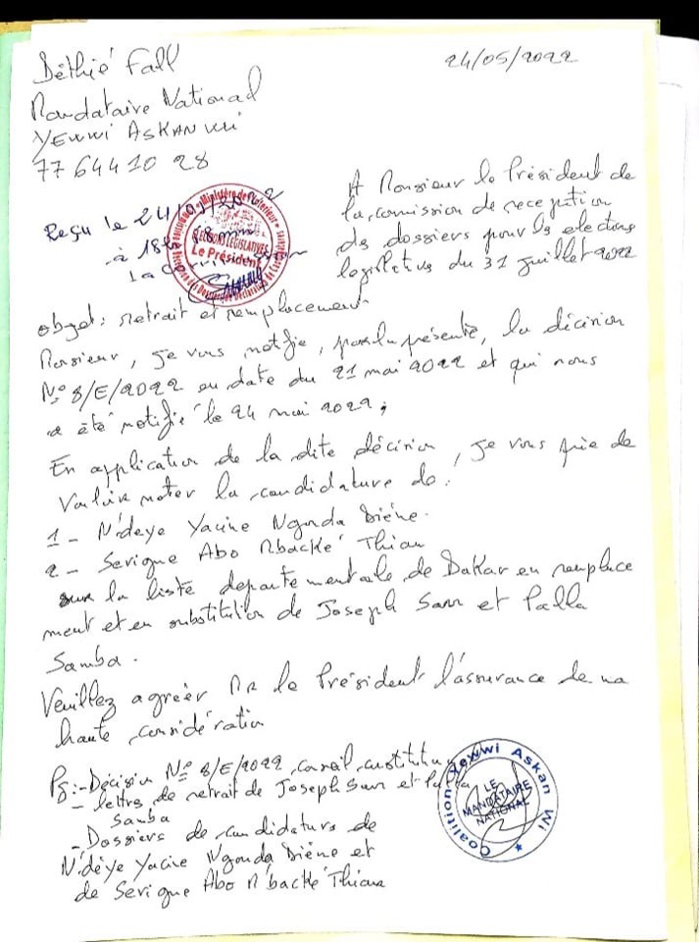 Déthié Fall
24/05/2022
Mandataire National
YEWWI ASKAN WI
77 644 10 28
A Monsieur le Président de
la commission de reception
des dossiers pour les elections
legislatives du 31 juillet 2022
Reçu le 24/05/2022
à 18h
Ministère de l'Interieur
ELECTIONS LEGISLATIVES
Le Président
objet: retrait et remplacement
Monsieur, je vous notifie, par la présente, la décision
N° 8/E/2022 en date du 21 mai 2022 et qui nous
a été notifié le 24 mai 2022;
En application de la dite décision, je vous prie de
Vouloir noter la candidature de:
1 - Ndeye Yacine Ngonda Diéne.
2 - Serigne Abo Mbacké Thiam
sur la liste departementale de Dakar en remplace
ment et en substitution de Joseph Sarr et Palla
Samba.
Veuillez agréer Mr le Président l'assurance de ma
haute considération
PS: - Décision N° 8/E/2022 conseil constitutionnel
- lettres de retrait de Joseph Sarr et Palla
Samba
- Dossiers de candidatures de
N'déye Yacine Ngonda Diéne et
de Serigne Abo M'backé Thiam
Coalition Yewwi Askan Wi
LE
MANDATAIRE
NATIONAL